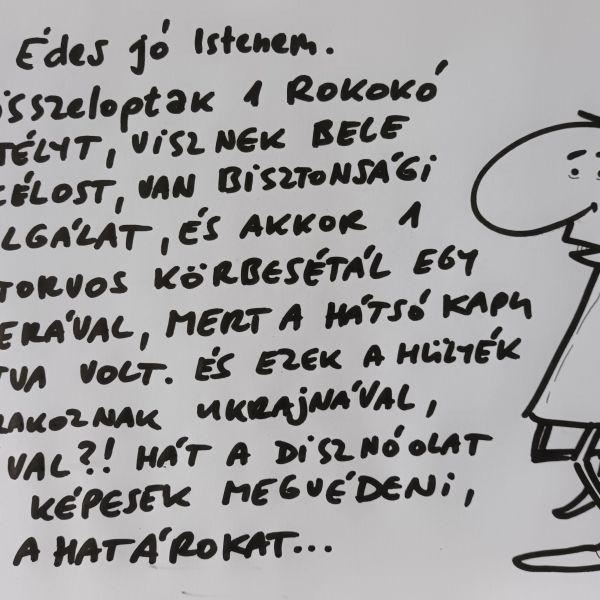 Édes jó Istenem.
összeloptak 1 ROKOKÓ
TÉLYT, VISZNEK BELE
CÉLOST, VAN BISZTONSÁGI
LGÁLAT, ÉS AKKOR 1
TORVOS KÖRBESÉTÁL EGY
ERÁVAL, MERT A HÁTSÓ KAPU
TVA VOLT. ÉS EZEK A HÜLYÉK
RAKOZNAK UKRAJNÁVAL,
VAL?! HÁT A DISZNÓÓLAT
KÉPESEK MEGVÉDENI,
A HATÁROKAT...